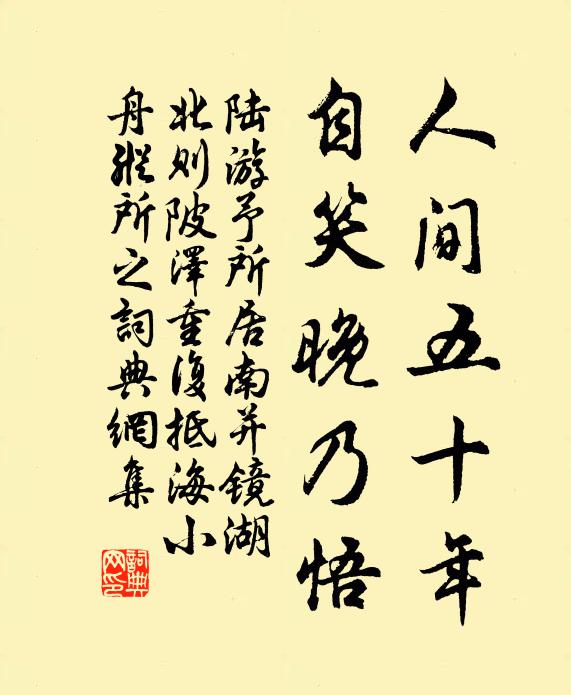 人间五十年
自笑晚乃悟
陆游予所居南并镜湖
北则陂泽重复抵海小
舟纵所之词典网集
詞典網印